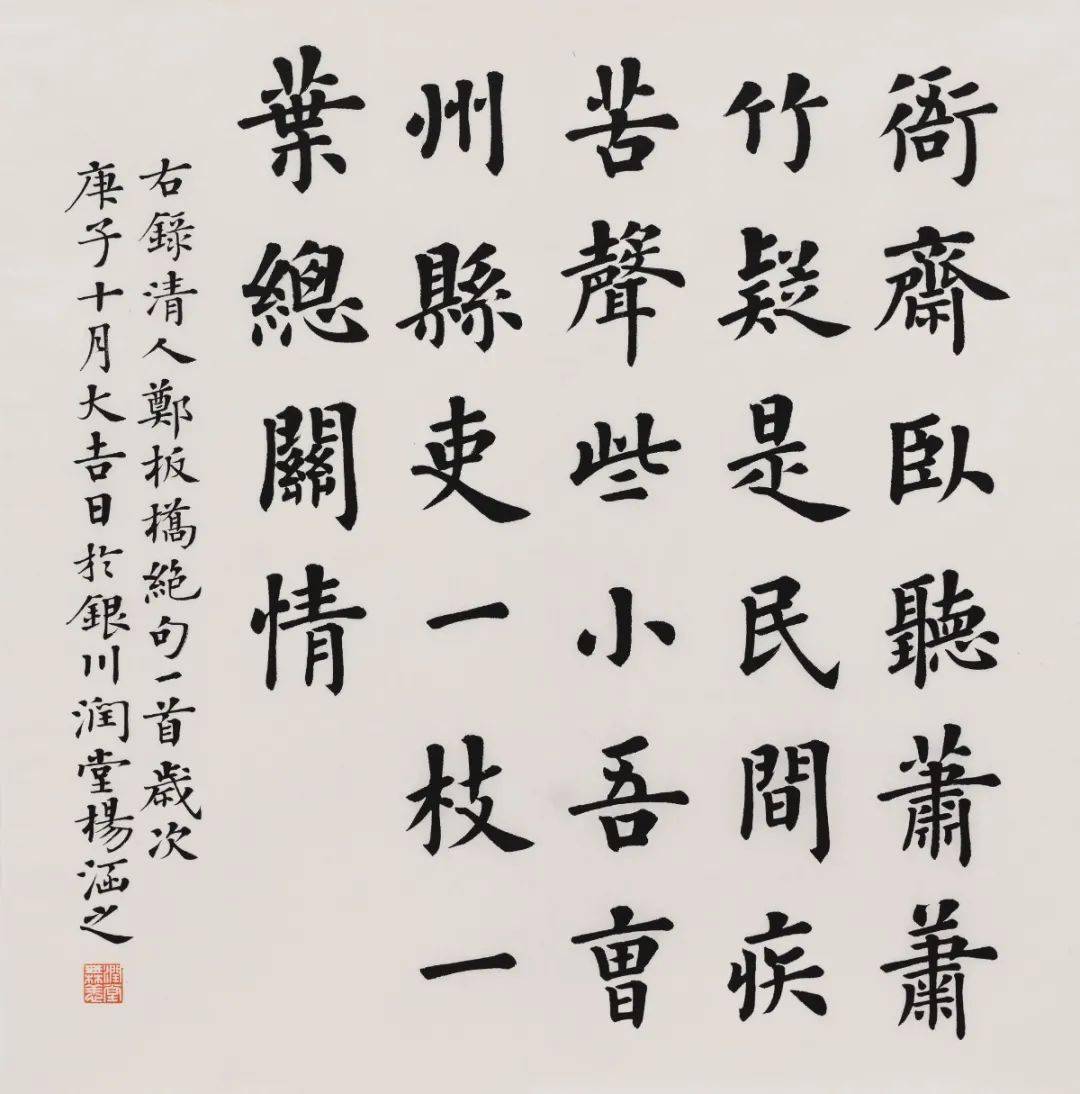 衙齋臥聽蕭蕭
竹疑是民間疾
苦聲些小吾曹
州縣吏一枝一
葉總關情
右錄清人鄭板橋絕句一首歲次
庚子十月大吉日於銀川潤堂楊涵之